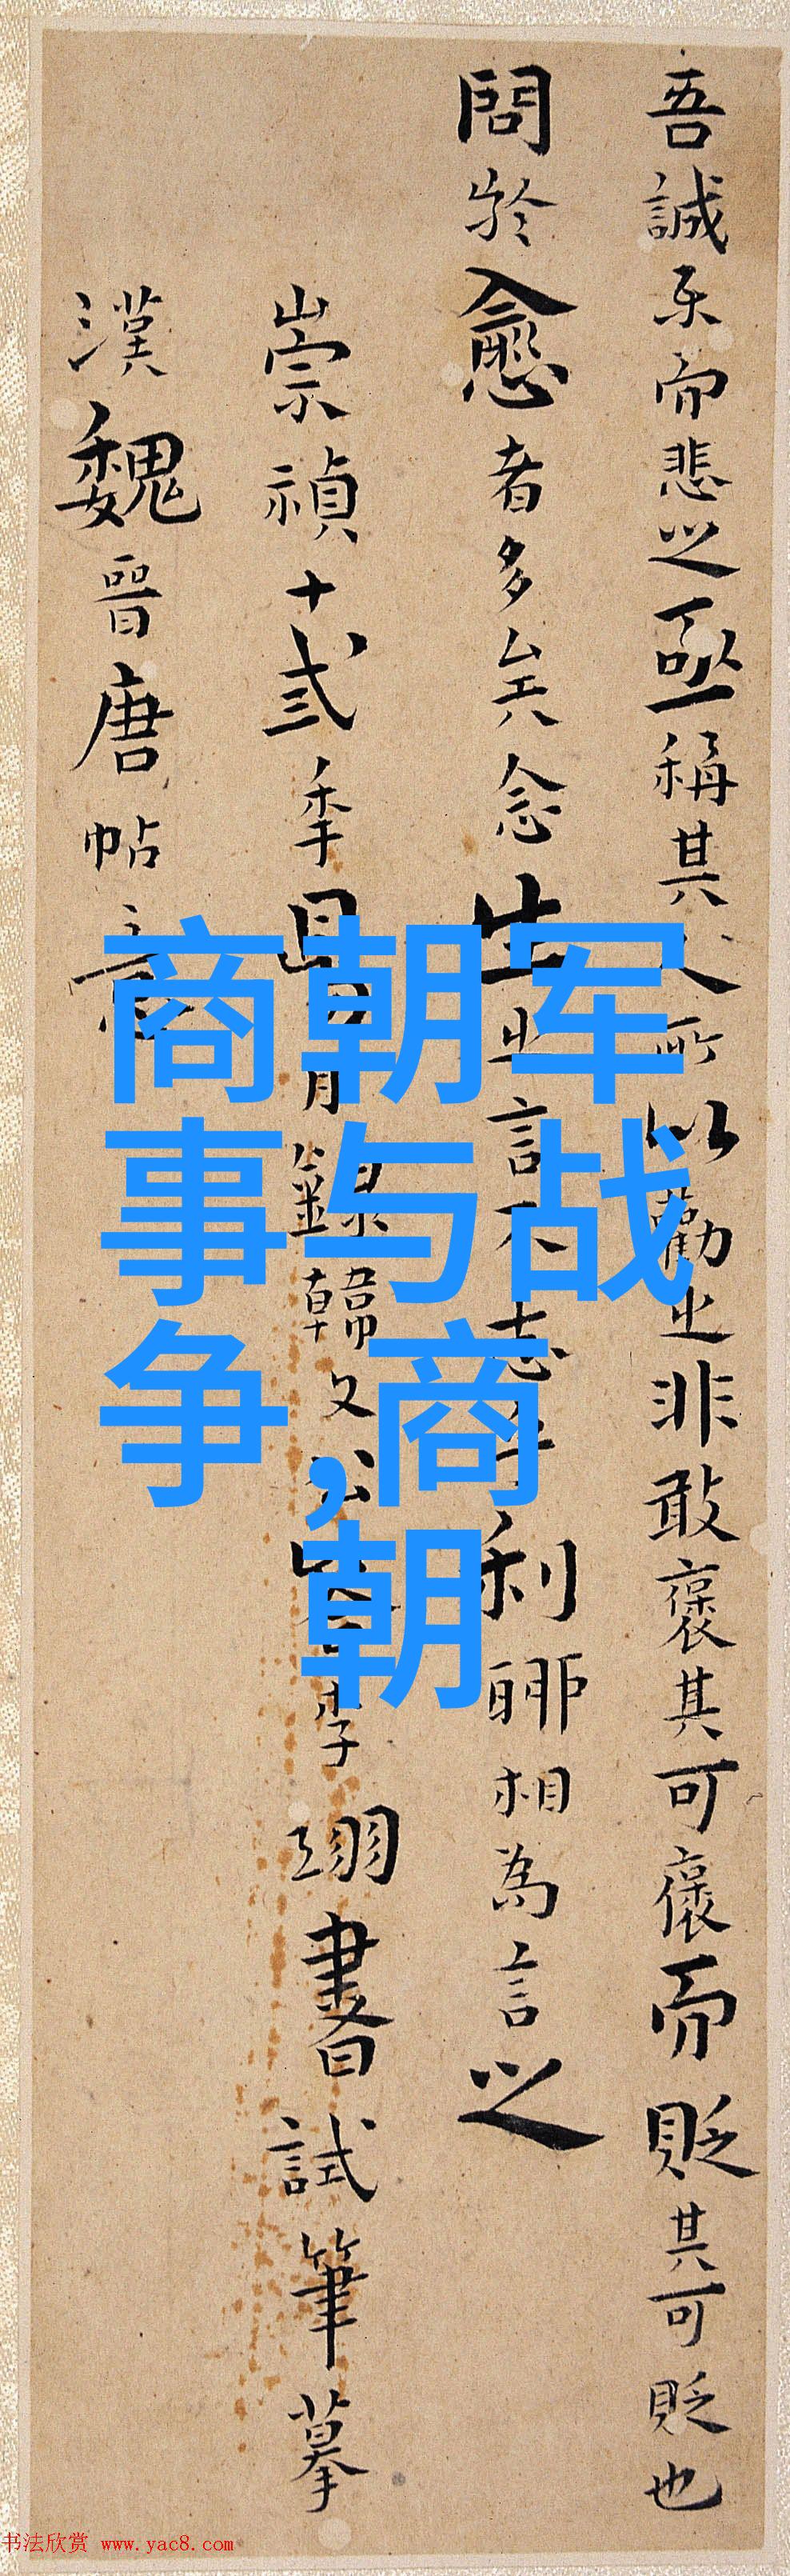 吾誠樂而悲之亟稱其人所以勸之非敢褒其可褒而貶其可貶也
問於愈者多矣念生之言不志乎利聊相為言之
崇禎十弍季四月錄韓文公答李翊書試筆摹
漢魏晉唐帖意
商朝军
事与战
争,商
朝
书法欣赏 www.yac8.com